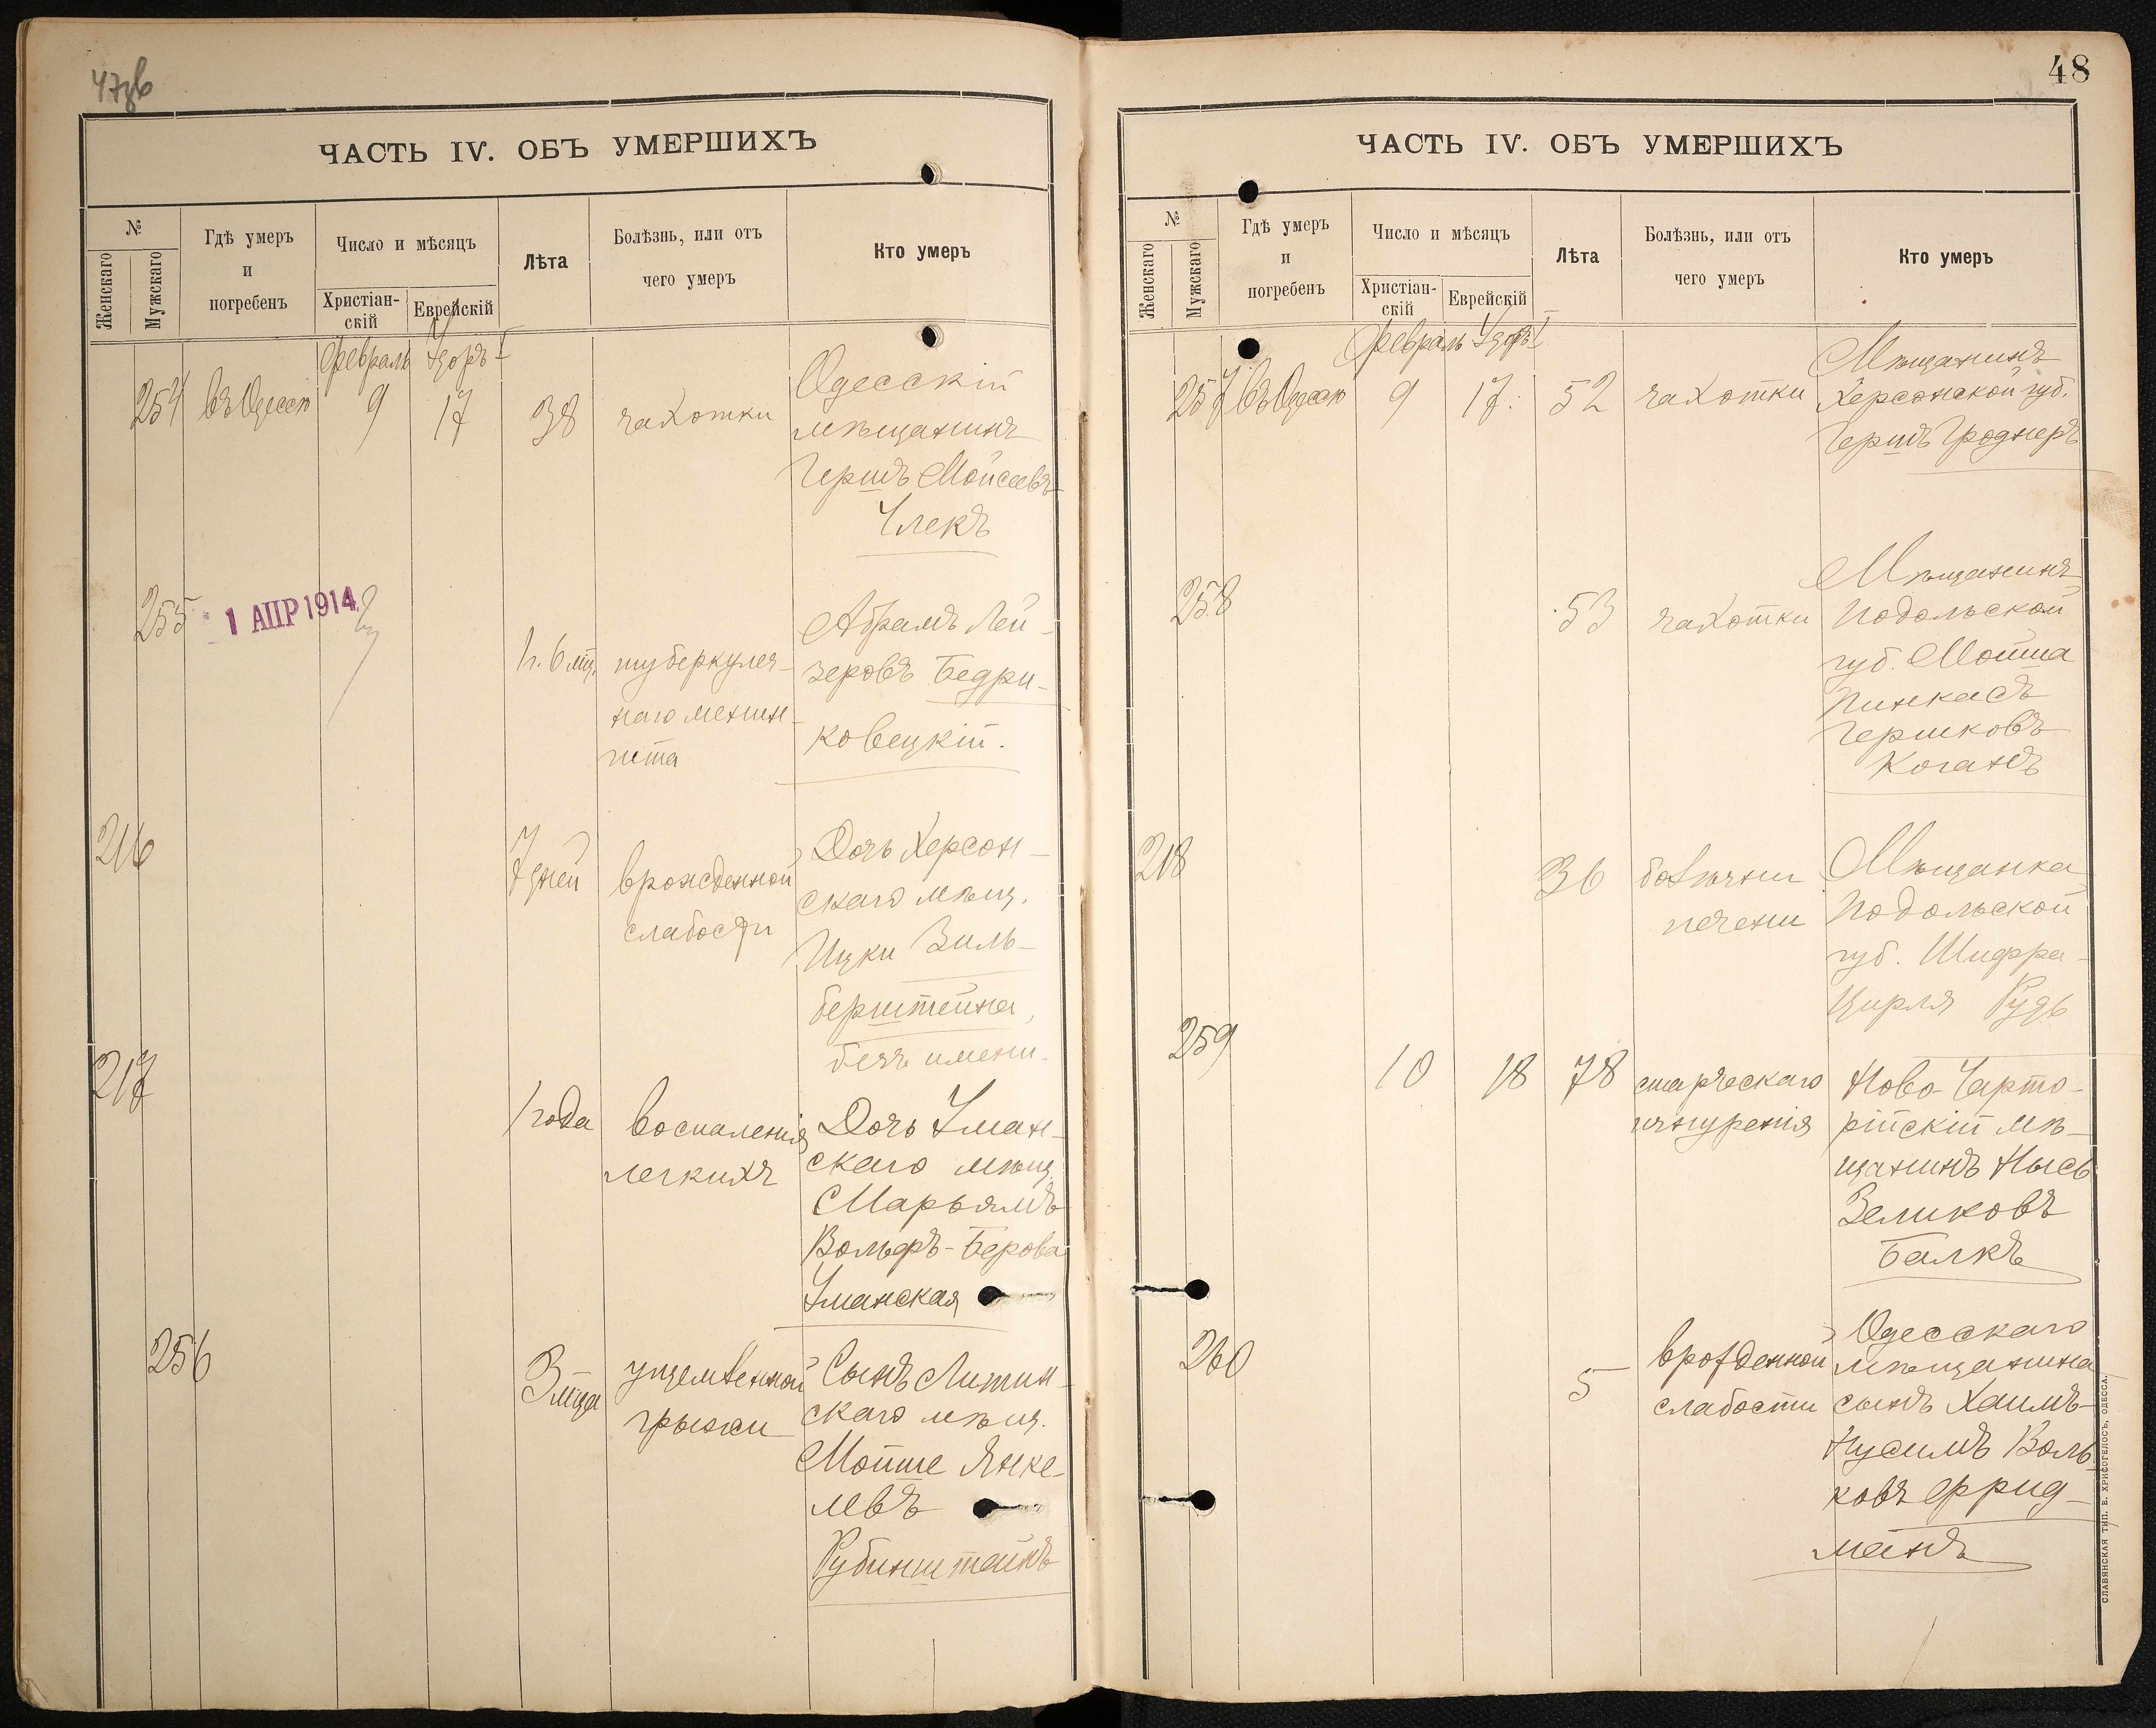 47зв
ЧАСТЬ IV. ОБЪ УМЕРШИХЪ
№
Женскаго
Мужскаго
Гдѣ умеръ
и
погребенъ
Число и мѣсяцъ
Христіан-
скій
Еврейскій
Лѣта
Болѣзнь, или отъ
чего умеръ
Кто умеръ
Февраль Адоръ I
254 въ Одессѣ 9 17 38 чахотки
Одесскій
мѣщанинъ
Гершъ Мойсеевъ
Улекъ
255
1 АПР 1914
1 г. 6 мц.
туберкулез-
наго менин-
гита
Абрамъ Лей-
зеровъ Бедри-
ковецкій.
216
7 дней
врожденной
слабости
Дочь Херсон-
скаго мѣщ.
Ицки Зиль-
берштейна,
безъ имени.
217
1 года
воспаленія
легкихъ
Дочь Уман-
скаго мѣщ.
Марьямъ
Вольфъ-Берова
Уманская
256
3 мца
ущемленной
грыжи
Сынъ Литин-
скаго мѣщ.
Мойше Янке-
левъ
Рубинштейнъ
48
ЧАСТЬ IV. ОБЪ УМЕРШИХЪ
№
Женскаго
Мужскаго
Гдѣ умеръ
и
погребенъ
Число и мѣсяцъ
Христіан-
скій
Еврейскій
Лѣта
Болѣзнь, или отъ
чего умеръ
Кто умеръ
Февраль Адоръ I
257 въ Одессѣ 9 17. 52 чахотки
Мѣщанинъ
Херсонской губ.
Гершъ Гроднеръ
258
53 чахотки
Мѣщанинъ
Подольской
губ. Мойша
Пинкасъ
Гершковъ
Коганъ
218
36
болѣзни
печени
Мѣщанка
Подольской
губ. Шифра-
Цирля Рудь
259
10 18 78
старческаго
изнуренія
Ново-Чарто-
рійскій мѣ-
щанинъ Нысь
Зеликовъ
Балкъ
260
5
врожденной
слабости
Одесскаго
мѣщанина
сынъ Хаимъ-
Нусимъ Воль-
ковъ Фрид-
манъ
СЛАВЯНСКАЯ ТИП. Е. ХРИСОГЕЛОСЪ, ОДЕССА.